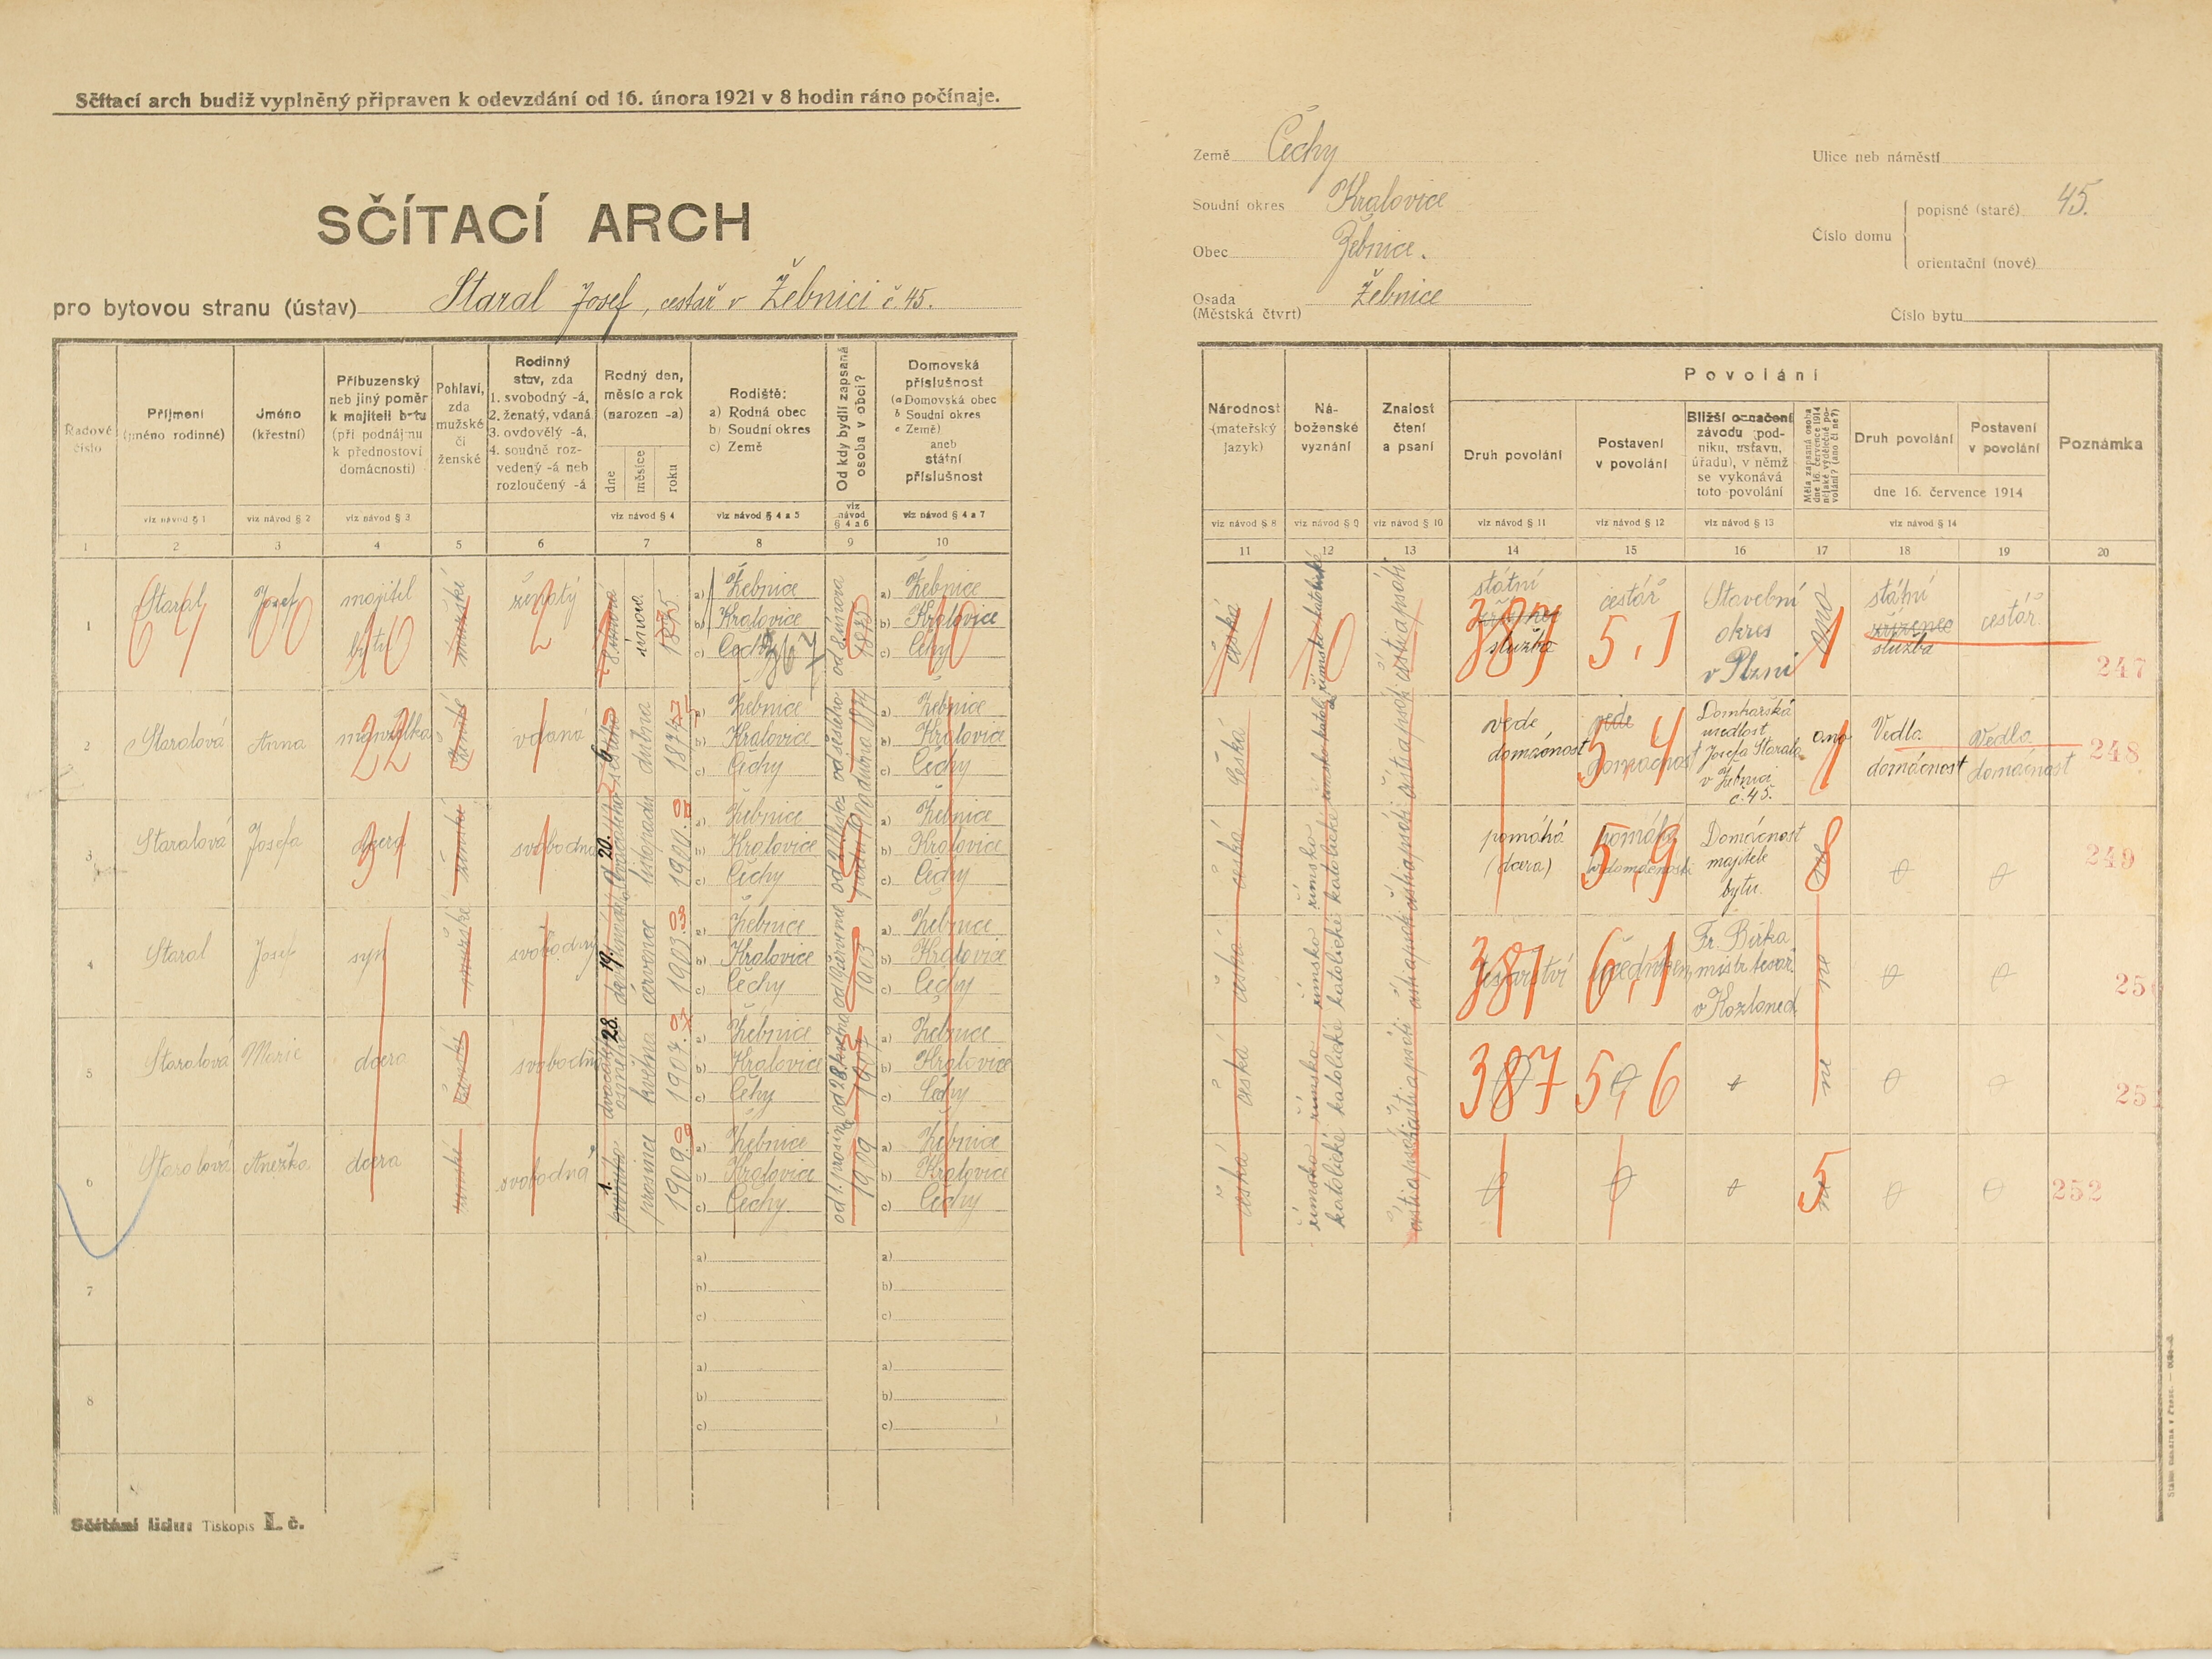 Sčítací arch budiž vyplněný připraven k odevzdání od 16. února 1921 v 8 hodin ráno počínaje.
SČÍTACÍ ARCH
pro bytovou stranu (ústav) Staral Josef, cestář v Žebnici č. 45.
Země Čechy
Soudní okres Kralovice
Obec Žebnice.
Osada Žebnice
(Městská čtvrt)
Ulice neb náměstí
Číslo domu
popisné (staré) 45.
orientační (nové)
Číslo bytu
Řadové číslo
Příjmení (jméno rodinné)
Jméno (křestní)
Příbuzenský neb jiný poměr k majiteli bytu (při podnájmu k přednostovi domácnosti)
Pohlaví, zda mužské či ženské
Rodinný stav, zda 1. svobodný -á, 2. ženatý, vdaná 3. ovdovělý -á, 4. soudně rozvedený -á neb rozloučený -á
Rodný den, měsíc a rok (narozen -a)
dne
měsíce
roku
Rodiště:
a) Rodná obec
b) Soudní okres
c) Země
Od kdy bydlí zapsaná osoba v obci?
Domovská příslušnost
(a Domovská obec
b Soudní okres
c Země)
aneb státní příslušnost
viz návod § 1
viz návod § 2
viz návod § 3
viz návod § 4
viz návod § 4 a 5
viz návod § 4 a 6
viz návod § 4 a 7
1 2 3 4 5 6 7 8 9 10
1 Staral Josef majitel bytu mužské ženatý 8. února únor. 1875.
a) Žebnice
b) Kralovice
c) Čechy
od 8. února 1875
a) Žebnice
b) Kralovice
c) Čechy
64 00 10 2 10
2 Staralová Anna manželka ženské vdaná 6 dubna 1874
a) Žebnice
b) Kralovice
c) Čechy
od šestého dubna 1874
a) Žebnice
b) Kralovice
c) Čechy
22
3 Staralová Josefa dcera ženské svobodná 20. dvacátého listopadu 1900.
a) Žebnice
b) Kralovice
c) Čechy
a) Žebnice
b) Kralovice
c) Čechy
31
4 Staral Josef syn mužské svobodný 19. července 1903.
a) Žebnice
b) Kralovice
c) Čechy
1903
a) Žebnice
b) Kralovice
c) Čechy
5 Staralová Marie dcera ženské svobodná 28. května 1907.
a) Žebnice
b) Kralovice
c) Čechy
od 28. května 1907
a) Žebnice
b) Kralovice
c) Čechy
6 Staralová Anežka dcera ženské svobodná 1. prosince 1909
a) Žebnice
b) Kralovice
c) Čechy
od 1. prosince 1909
a) Žebnice
b) Kralovice
c) Čechy
7
a)
b)
c)
a)
b)
c)
8
a)
b)
c)
a)
b)
c)
Sčítání lidu: Tiskopis I. č.
Národnost (mateřský jazyk)
Náboženské vyznání
Znalost čtení a psaní
Povolání
Druh povolání
Postavení v povolání
Bližší označení závodu (podniku, ústavu, úřadu), v němž se vykonává toto povolání
Měla zapsaná osoba dne 16. července 1914 nějaké výdělečné povolání? (ano či ne?)
Druh povolání
Postavení v povolání
dne 16. července 1914
Poznámka
viz návod § 8
viz návod § 9
viz návod § 10
viz návod § 11
viz návod § 12
viz návod § 13
viz návod § 14
11 12 13 14 15 16 17 18 19 20
česká římsko-katolické čísti a psáti státní služba cestář Stavební okres v Plzni ano státní zřízenec služba cestář 247
387 5,1 1
česká římsko-katolické čísti a psáti vede domácnost vede domácnost Domkářská usedlost Josefa Starala v Žebnici č. 45. ano Vedla domácnost Vedla domácnost 248
5,4 1
česká římsko katolické čísti a psáti pomáhá (dcera) pomáhá v domácnosti Domácnost majitele bytu. ne 249
5,9 8
česká římsko katolické čísti a psáti tesařství Fr. Bírka mistr tesař. ne 25
381 6,1
česká římsko katolické čísti a psáti ne 25
387 5,6
česká římsko katolické čísti a psáti ne 252
5